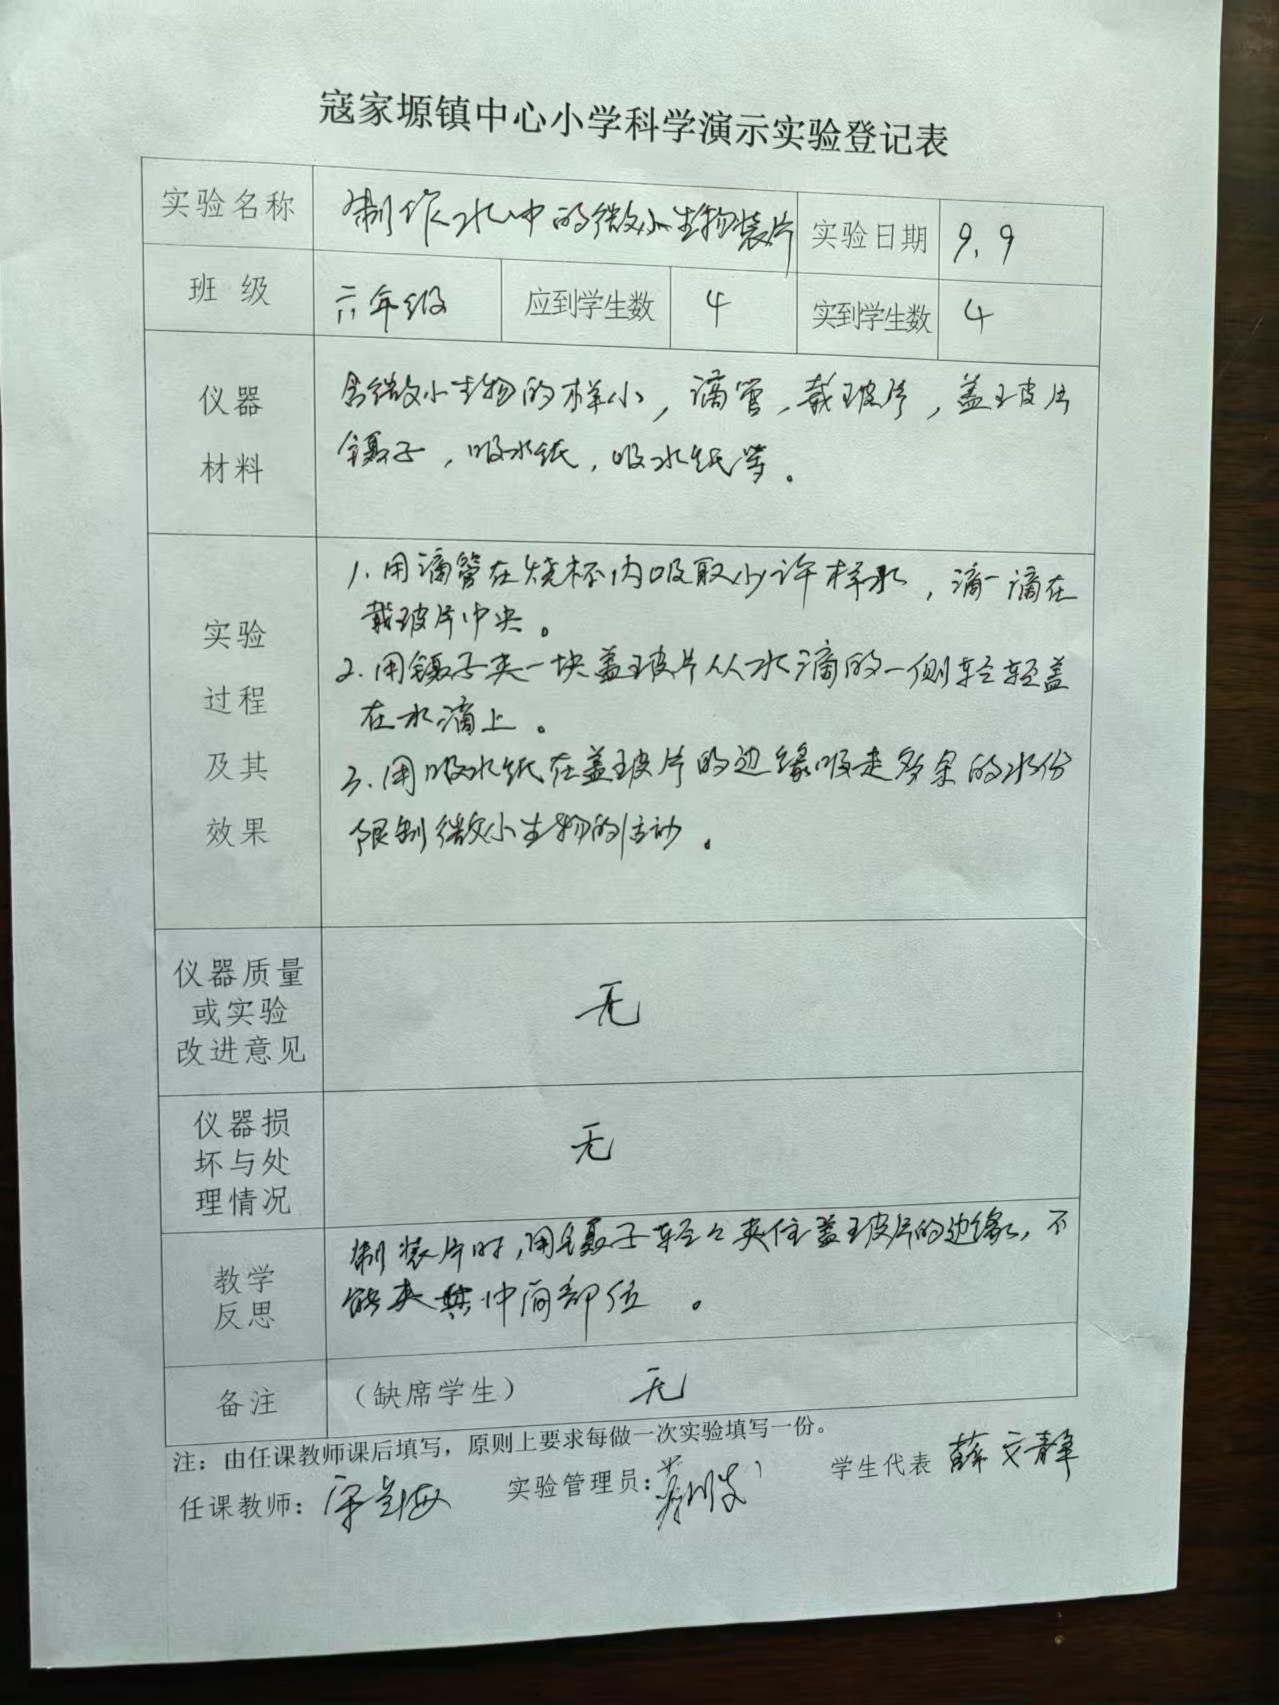 寇家塬镇中心小学科学演示实验登记表
实验名称 制作水中的微小生物装片 实验日期 9.9
班 级 六年级 应到学生数 4 实到学生数 4
仪器
材料
含微小生物的样小，滴管，载玻片，盖玻片
镊子，吸水纸，吸水纸等。
实验
过程
及其
效果
1.用滴管在烧杯内吸取少许样水，滴一滴在
载玻片中央。
2.用镊子夹一块盖玻片从水滴的一侧轻轻盖
在水滴上。
3.用吸水纸在盖玻片的边缘吸走多余的水份
限制微小生物的活动。
仪器质量
或实验
改进意见
无
仪器损
坏与处
理情况
无
教学
反思
制装片时，用镊子轻々夹住盖玻片的边缘，不
能夹 中间部位 。
备注 （缺席学生） 无
注：由任课教师课后填写，原则上要求每做一次实验填写一份。
任课教师： 实验管理员： 学生代表 薛文静